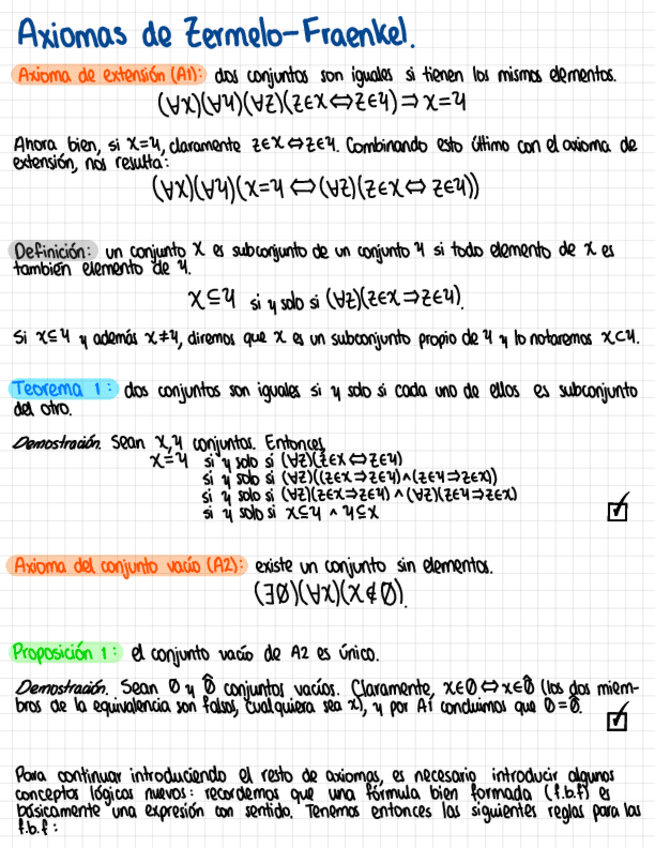 Axiomas de Zermelo-Fraenkel.
Axioma de extensión (A1): dos conjuntos son iguales si tienen los mismos elementos.
(∀x)(∀y)(∀z)(z∈x⇔z∈y)⇒x=y
Ahora bien, si x=y, claramente z∈x⇔z∈y. Combinando esto último con el axioma de
extensión, nos resulta:
(∀x)(∀y)(x=y⇔(∀z)(z∈x⇔z∈y))
Definición: un conjunto x es subconjunto de un conjunto y si todo elemento de x es
también elemento de y.
x⊆y si y solo si (∀z)(z∈x⇒z∈y).
Si x⊆y y además x≠y, diremos que x es un subconjunto propio de y y lo notaremos x⊂y.
Teorema 1: dos conjuntos son iguales si y solo si cada uno de ellos es subconjunto
del otro.
Demostración. Sean x,y conjuntos. Entonces
x=y si y solo si (∀z)(z∈x⇔z∈y)
si y solo si (∀z)((z∈x⇒z∈y)∧(z∈y⇒z∈x))
si y solo si (∀z)(z∈x⇒z∈y)∧(∀z)(z∈y⇒z∈x)
si y solo si x⊆y ∧ y⊆x
Axioma del conjunto vacío (A2): existe un conjunto sin elementos.
(∃∅)(∀x)(x∉∅).
Proposición 1: el conjunto vacío de A2 es único.
Demostración. Sean ∅ y ∅̂ conjuntos vacíos. Claramente, x∈∅⇔x∈∅̂ (los dos miem-
bros de la equivalencia son falsos, cualquiera sea x), y por A1 concluimos que ∅=∅̂.
Para continuar introduciendo el resto de axiomas, es necesario introducir algunos
conceptos lógicos nuevos: recordemos que una fórmula bien formada (f.b.f) es
básicamente una expresión con sentido. Tenemos entonces las siguientes reglas para las
f.b.f: